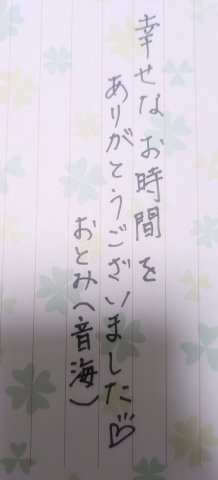 幸せなお時間を
ありがとうございました♡
おとみ(音海)